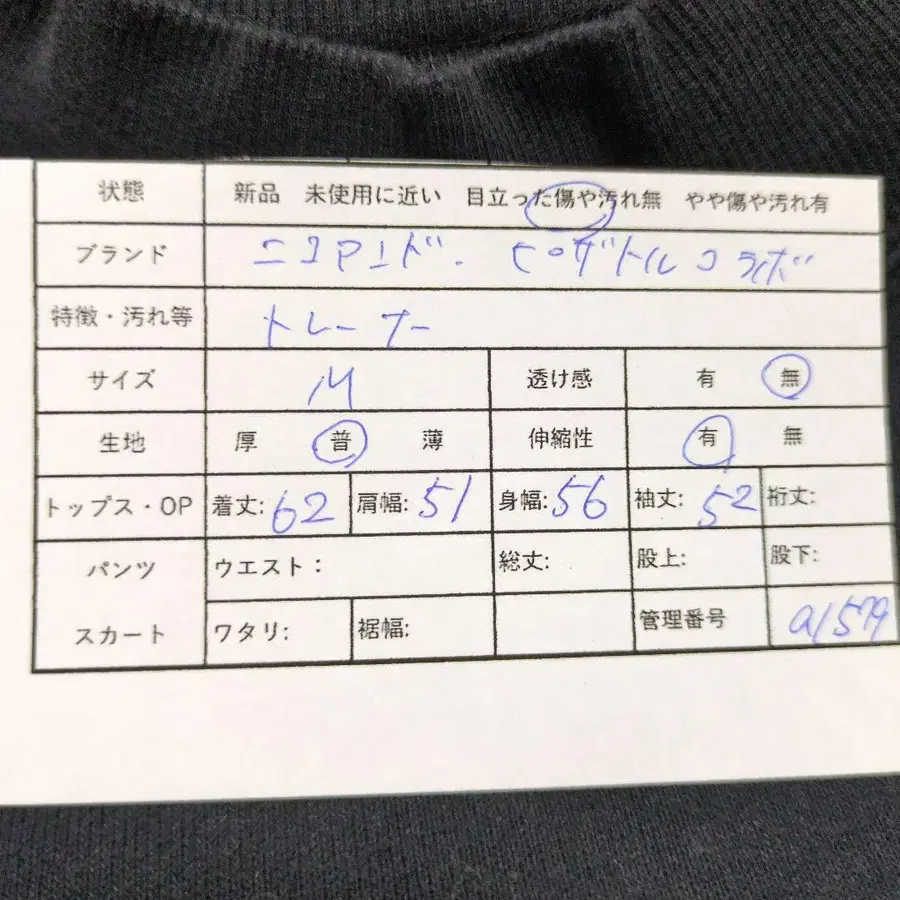 状態 新品 未使用に近い 目立った傷や汚れ無 やや傷や汚れ有
ブランド ニコアンド. ピロザトルコラボ
特徴・汚れ等 トレーナー
サイズ M 透け感 有 無
生地 厚 普 薄 伸縮性 有 無
トップス・OP 着丈:62 肩幅:51 身幅:56 袖丈:52 裄丈:
パンツ ウエスト: 総丈: 股上: 股下:
スカート ワタリ: 裾幅: 管理番号 a1579